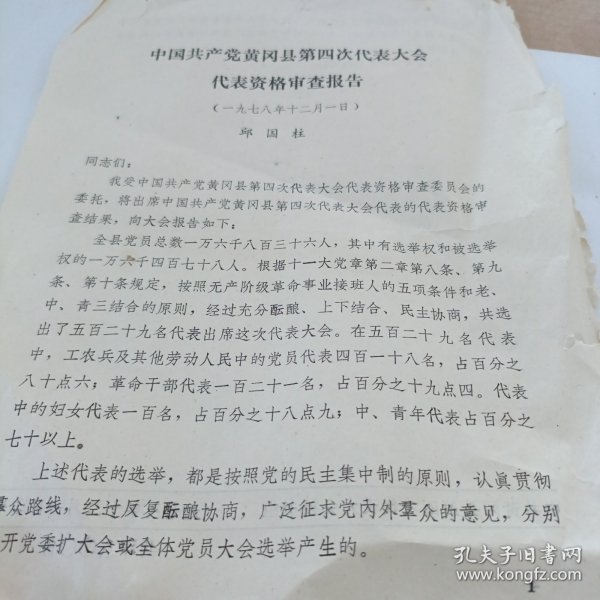 中国共产党黄冈县第四次代表大会
代表资格审查报告
（一九七八年十二月一日）
邱国柱
同志们：
我受中国共产党黄冈县第四次代表大会代表资格审查委员会的
委托，将出席中国共产党黄冈县第四次代表大会代表的代表资格审
查结果，向大会报告如下：
全县党员总数一万六千八百三十六人，其中有选举权和被选举
权的一万六千四百七十八人。根据十一大党章第二章第八条、第九
条、第十条规定，按照无产阶级革命事业接班人的五项条件和老、
中、青三结合的原则，经过充分酝酿、上下结合、民主协商，共选
出了五百二十九名代表出席这次代表大会。在五百二十九名代表
中，工农兵及其他劳动人民中的党员代表四百一十八名，占百分之
八十点六；革命干部代表一百二十一名，占百分之十九点四。代表
中的妇女代表一百名，占百分之十八点九；中、青年代表占百分之
七十以上。
上述代表的选举，都是按照党的民主集中制的原则，认真贯彻
群众路线，经过反复酝酿协商，广泛征求党内外群众的意见，分别
开党委扩大会或全体党员大会选举产生的。
1
孔夫子旧书网
www.kongfz.com